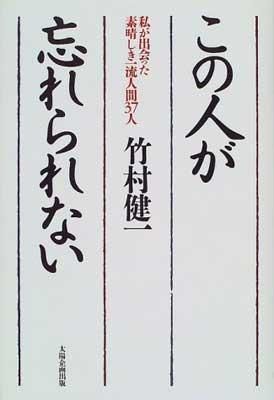 この人が
忘れられない
私が出会った
素晴しき一流人間37人
竹村健一
太陽企画出版